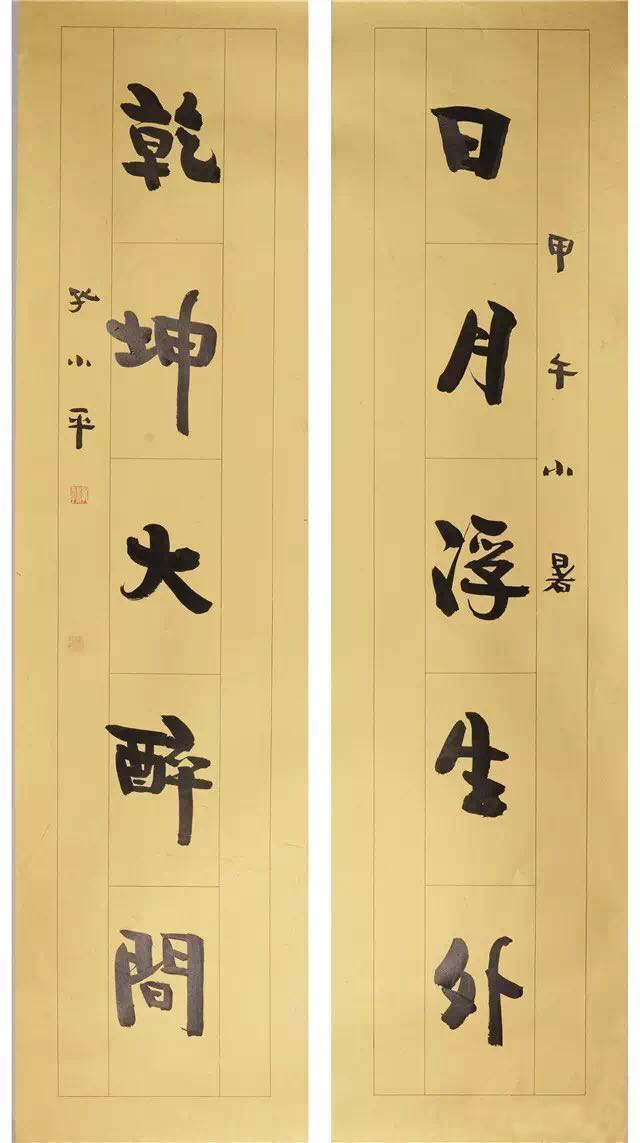 甲午小暑
日月浮生外
乾坤大醉間
孔小平